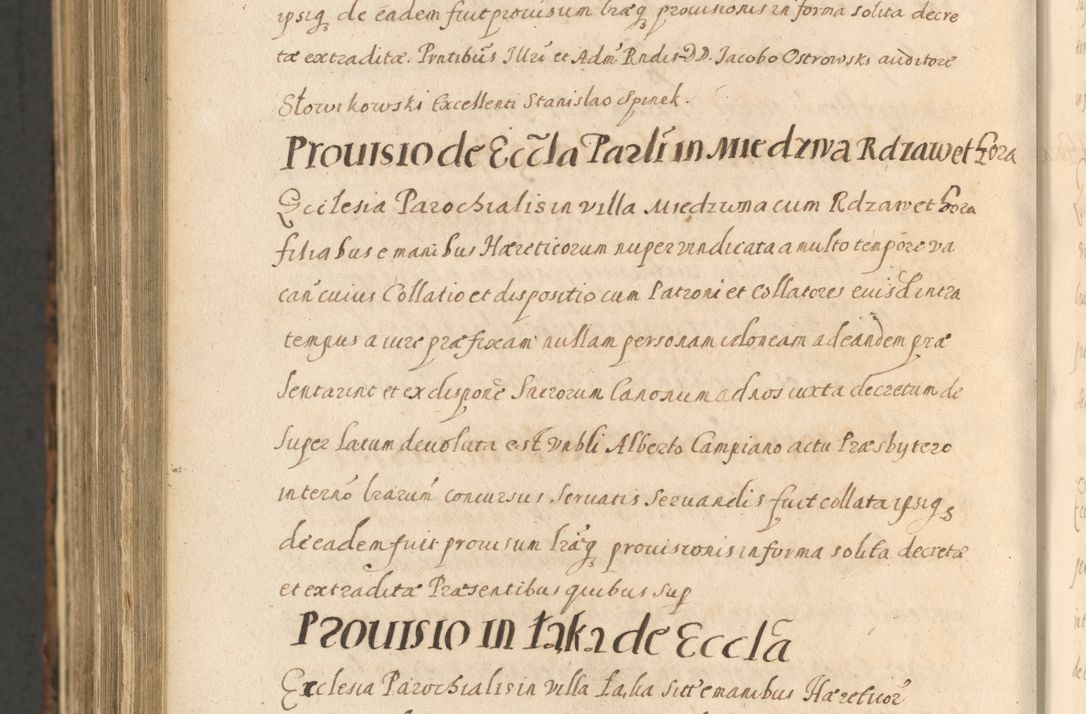 ipsiq₃ de eadem fuit prouisum lr̃æq₃ prouisionis in forma solita decre
tæ extraditæ. Pntibus̃ Illri et Admˢ Rndis DD. Jacobo Ostrowski auditore
Słowikowski Excellenti Stanislao Spinek.
Prouisio de Ecc̃la Parli in Miedzwa Rdzaw et Gora
Ecclesia Parochialis in villa Miedzwna cum Rdzaw et Gora
filiabus e manibus Hæreticorum nuper vindicata a multo tempore va
can̄ cuius Collatio et dispositio cum Patroni et Collatores eiusd intra
tempus a iure præfixam nullam personam idoneam ad eandem præ
sentarint et ex dispone Sacrorum Canonum ad nos iuxta decretum de
super latum deuoluta est Vnbli Alberto Campiano actu Præsbytero
in termo lrarum concursus seruatis seruandis fuit collata ipsiq₃
de eadem fuit prouisum lr̃æq₃ prouisionis in forma solita decretæ
et extraditæ Præsentibus quibus sup
Prouisio in Łąka de Eccla
Ecclesia Parochialis in villa Łąka sitt e manibus Hæreticor̃